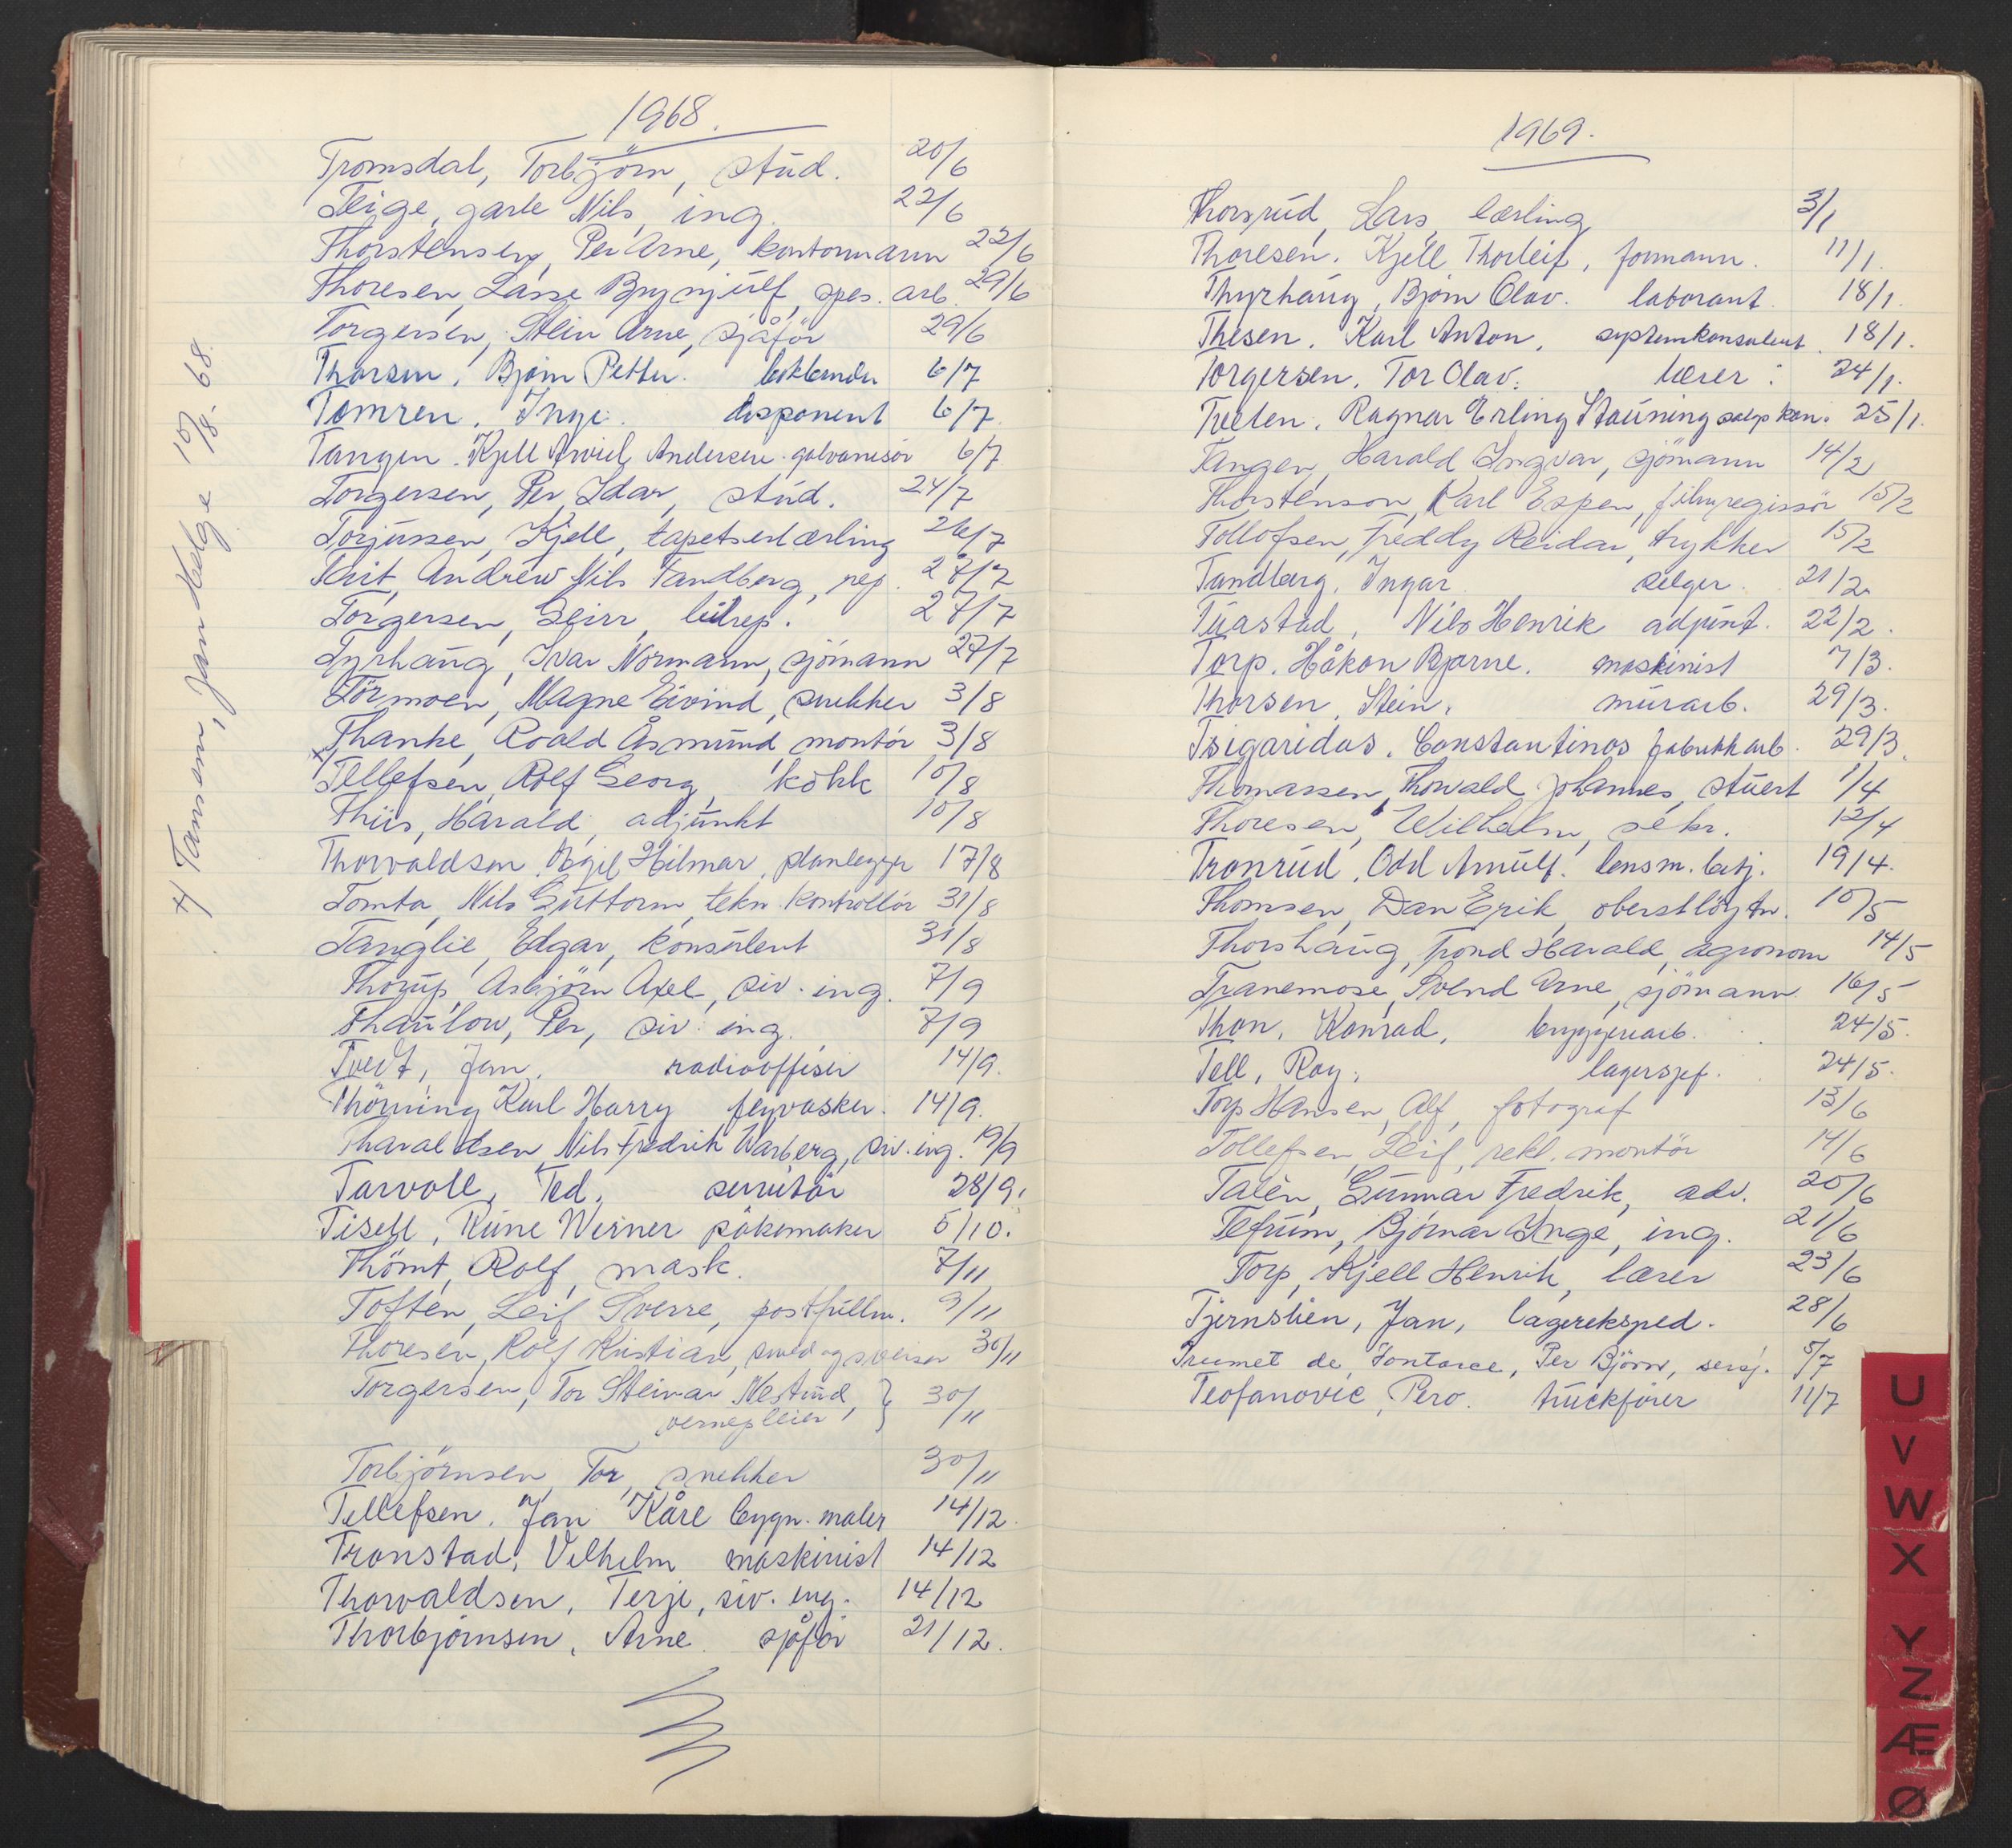 1968.
Tromsdal, Torbjörn, stud. 20/6
Teige, Nils, ing. 22/6
Thorstensen, Per Arne, kontormann 22/6
Thoresen, Lasse Brynjulf, spes. arb. 29/6
Torgersen, Stein Arne, sjåför 29/6
Thorsen, Bjørn Petter. 6/7
Tomren, Inge. disponent 6/7
Tangen. Kjell Andersen. galvanisör 6/7
Torgersen, Per Idar, stud. 24/7
Torjussen, Kjell, tapetserlærling 26/7
Tait, Andrew Nils Tandberg, rep. 27/7
Torgersen, Geirr, bilrep. 27/7
Tyrhaug, Ivar Normann, sjömann 27/7
Törmoen, Magne Eivind, snekker 3/8
Thanke, Roald Åsmund, montör 3/8
x/ Tellefsen, Rolf Georg, kokk 10/8
Thiis, Harald, adjunkt 10/8
Thorvaldsen, Hilmar, planlegger 17/8
Tomta, Nils Guttorm, tekn. kontrollör 31/8
Tanglie, Edgar, konsulent 31/8
Thorup, Asbjörn Axel, siv. ing. 7/9
Thaulow, Per, siv. ing. 7/9
Tvedt, Jan. radiooffiser 14/9.
Thörning Karl Harry 14/9.
Tharaldsen Nils Fredrik Warberg, siv. ing. 19/9
Tarvoll, Ted. servitör 28/9.
Tisell, Rune Werner 5/10.
Thömt, Rolf, mask. 7/11
Toften, Leif Sverre, postfullm. 9/11
Thoresen, Rolf Kristian, 30/11
Torgersen, Tor Steinar Nestrud, } 30/11
vernepleier
Torbjörnsen, Tor, snekker 30/11
Tellefsen. Jan Kåre bygn. maler 14/12.
Tronstad, Vilhelm maskinist 14/12
Thorvaldsen, Terje, siv. ing. 14/12
Thorbjørnsen, Arne. sjåfør 21/12.
x/ Tamsen, Jan Helge 10/8-68.
1969.
Thorsrud, Lars, lærling 3/1
Thoresen. Kjell Thorleif, formann. 11/1.
Thyrhaug, Bjørn Olav. laborant. 18/1.
Thesen. Karl Anton. systemkonsulent. 18/1.
Torgersen. Tor Olav. lærer. 24/1.
Tveten. Ragnar Erling Stauning 25/1.
Tangen, Harald Ingvar, sjömann 14/2
Thorstenson, Karl Espen, filmregissör 15/2
Tollofsen, Freddy Reidar, trykker 15/2
Tandberg, Ingar selger. 21/2.
Tuastad, Nils Henrik adjunt. 22/2.
Torp. Håkon Bjarne. maskinist 7/3.
Thorsen, Stein. murarb. 29/3.
Tsigaridas. Constantinos fabrikkarb. 29/3.
Thomassen, Thorvald Johannes, stuert 1/4
Thoresen, Wilhelm, sekr. 12/4
Tronrud, Odd Arnulf. lensm. betj. 19/4.
Thomsen, Dan Erik, oberstlöytn. 10/5
Thorshaug, Trond Harald, agronom 14/5
Tranemose, Svend Arne, sjömann 16/5
Thon, Konrad, bryggeriarb. 24/5.
Tell, Roy, lagersjef. 24/5.
Torp Hansen, Alf, fotograf 13/6
Tollefsen, Leif, rekl. montör 14/6
Talèn, Gunnar Fredrik, adv. 20/6
Tefum, Björnar Ynge, ing. 21/6
Torp, Kjell Henrik, lærer 23/6
Tjernslien, Jan, lagereksped. 28/6
de Per Björn, sersj. 5/7
Teofanovic, Pero. truckfører 11/7
U
V
W
X
Y
Z
Æ
Ø